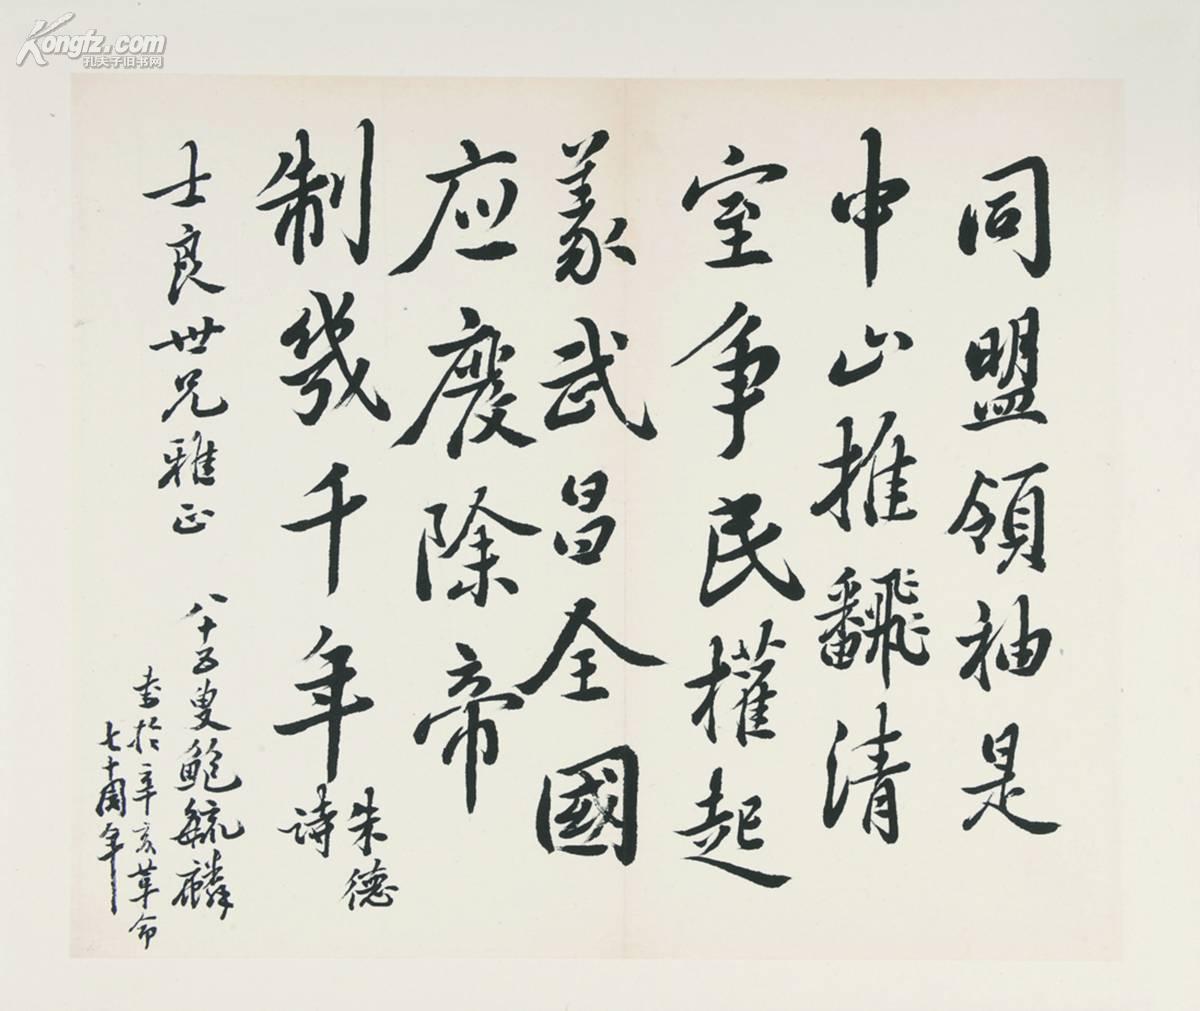 同盟領袖是
中山推飜清
室争民權起
義武昌全國
应廢除帝
制幾千年
朱德
詩
士良世兄雅正
八十五叟鲍毓麟
書於辛亥革命
七十周年
Kongfz.com
孔夫子旧书网